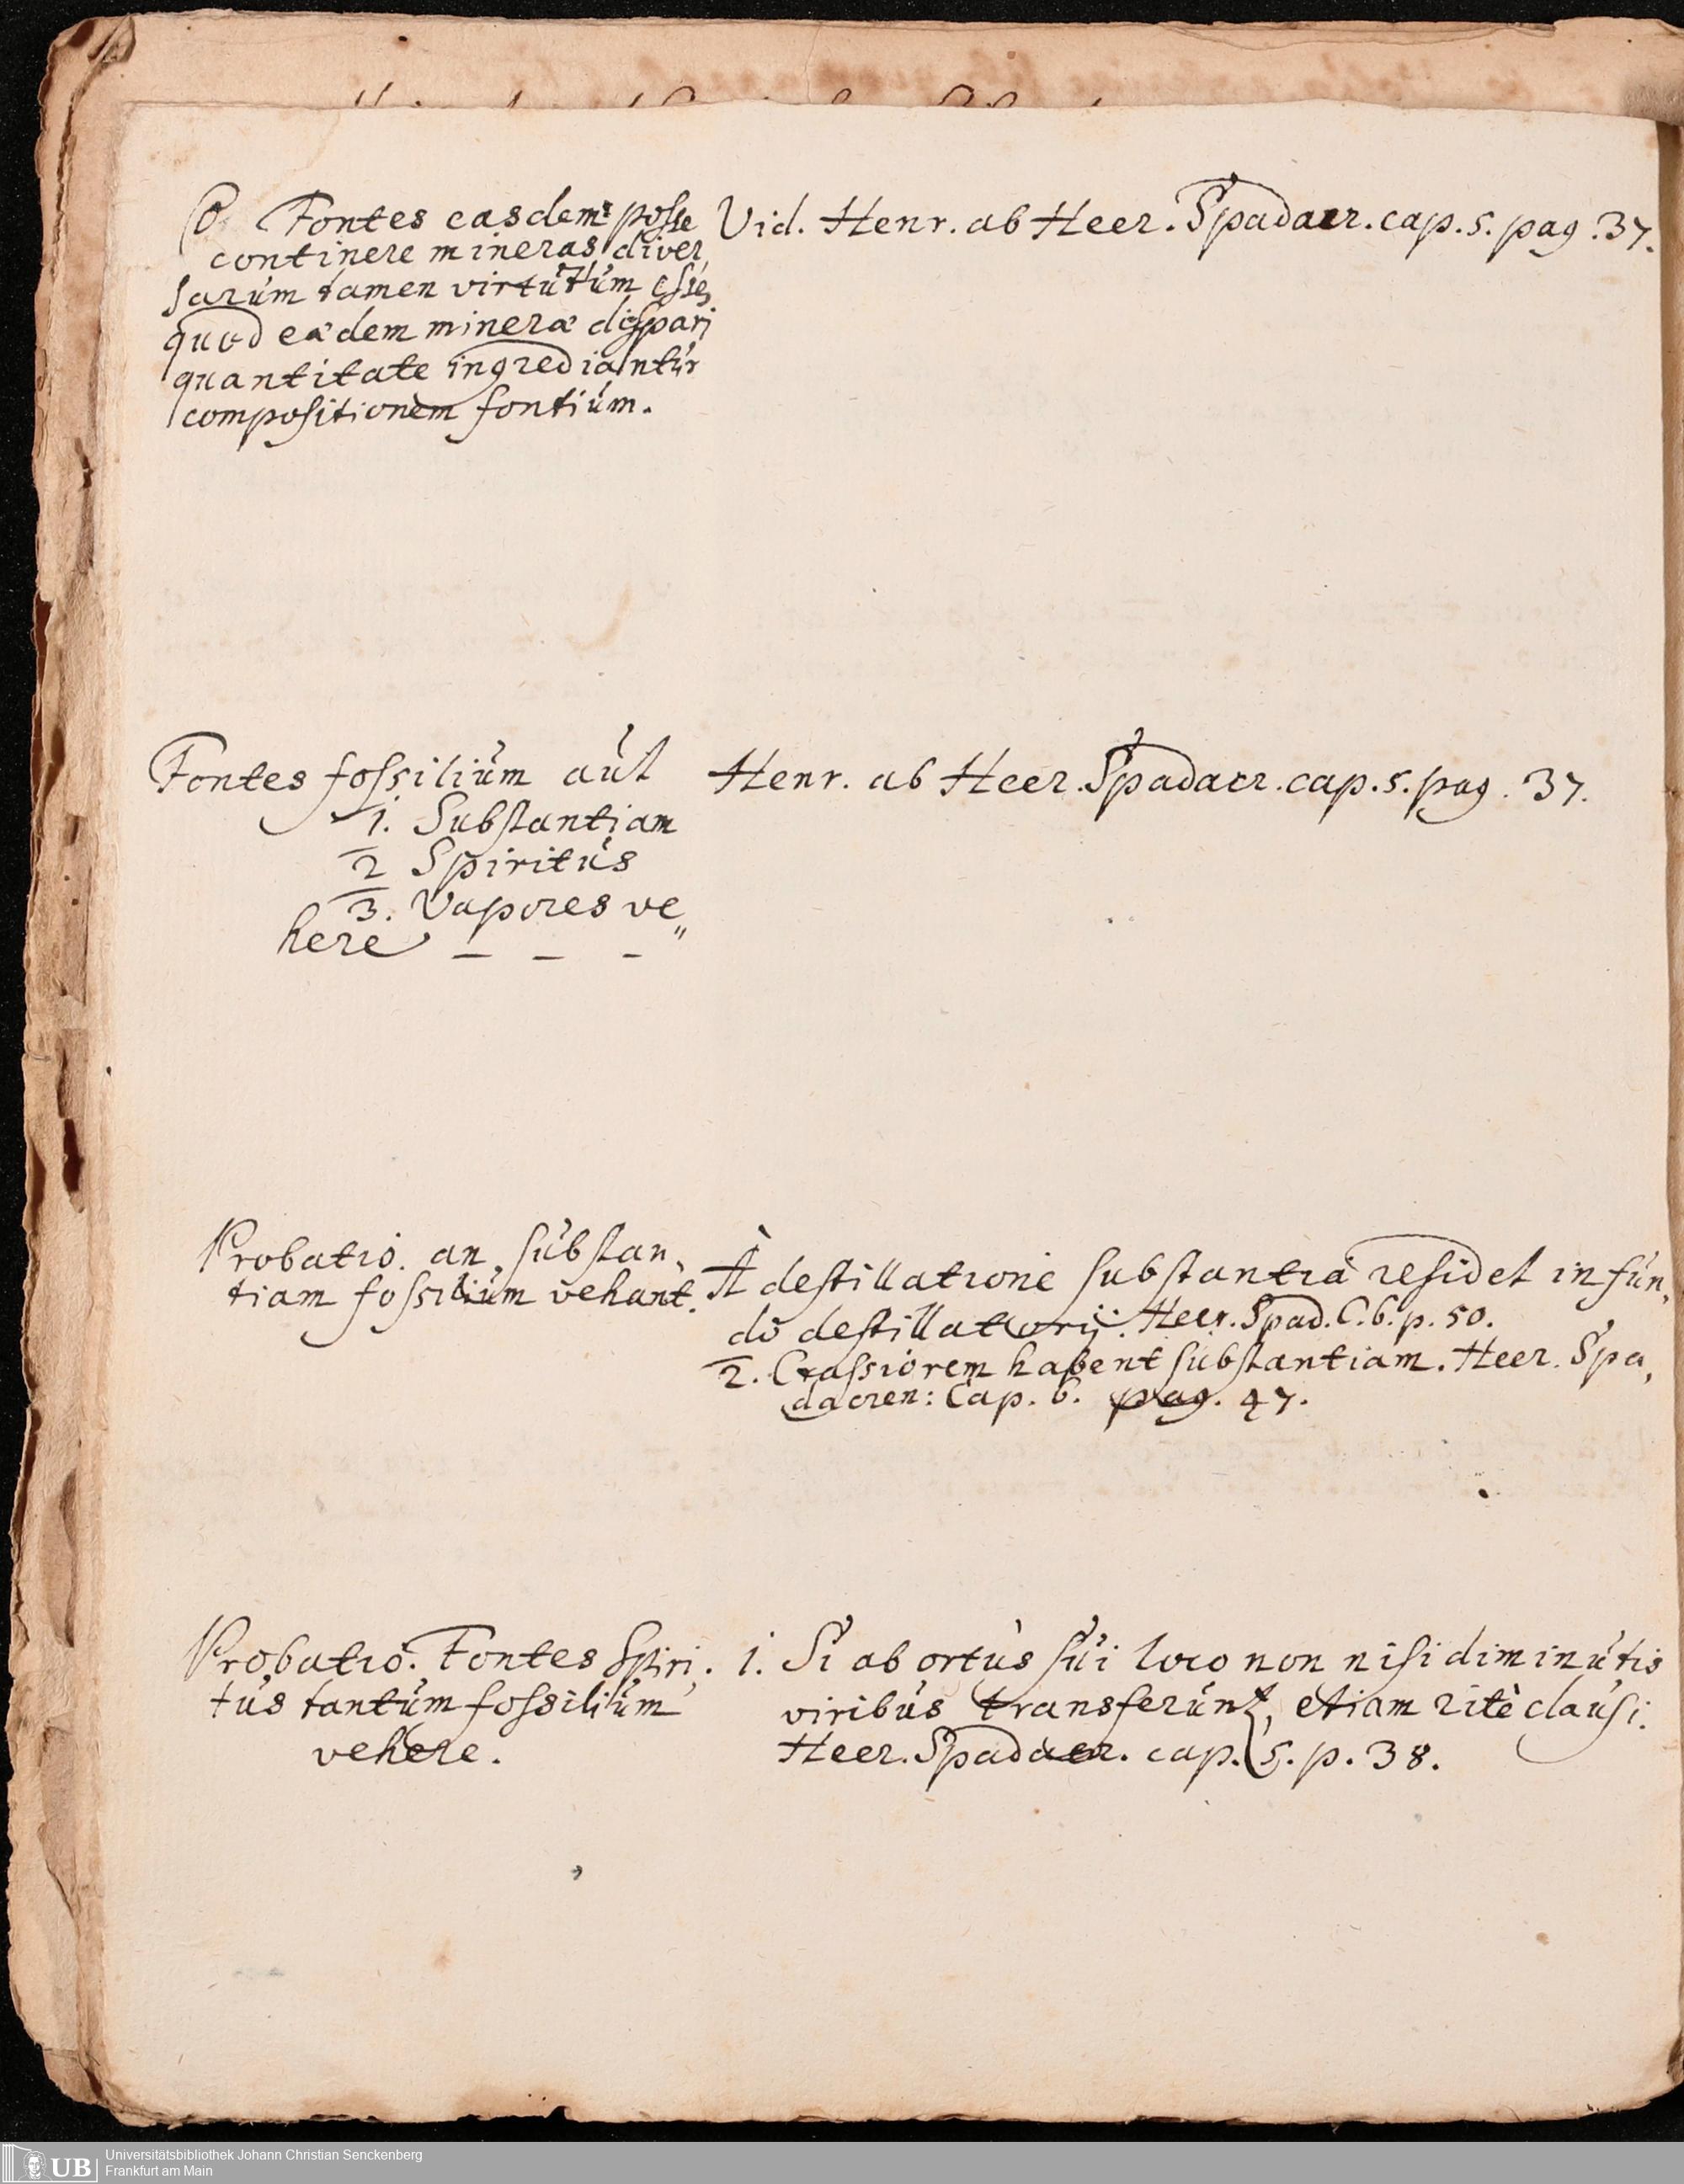 Fontes easdem posse
continere mineras diver,
sarum tamen virtutum esse,
quod eædem mineræ dispari
quantitate ingrediantur
compositionem fontium.
Vid. Henr. ab Heer. Spadacr. cap. 5. pag. 37.
Fontes fossilium aut
1. Substantiam
2 Spiritus
3. Vapores ve„
here – – –
Henr. ab Heer. Spadacr. cap. 5. pag. 37.
Probatio. an substan,
tiam fossilium vehant.
À destillatione substantia residet in fun,
do destillatorij. Heer. Spad. C. 6. p. 50.
2. Crassiorem habent substantiam. Heer. Spa,
dacren: Cap. 6. pag. 47.
Probatio. Fontes Spiri,
tus tantum fossilium
vehere.
1. Si ab ortus sui loco non nisi diminutis
viribus transferunt, etiam ritè clausi.
Heer. Spadacr. cap. 5. p. 38.
UB Universitätsbibliothek Johann Christian Senckenberg
Frankfurt am Main